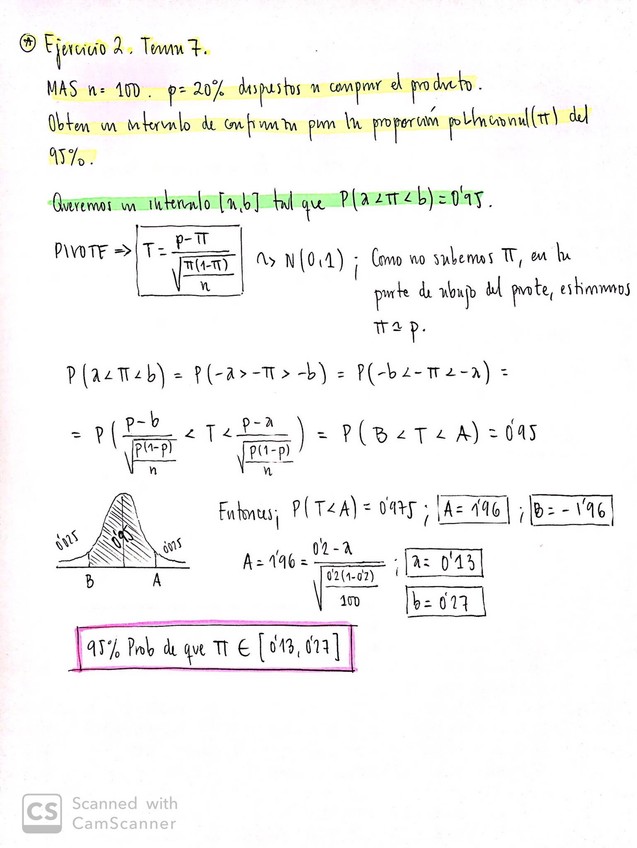 * Ejercicio 2. Tema 7.
MAS n= 100. p= 20% dispuestos a comprar el producto.
Obten un intervalo de confianza para la proporción poblacional (π) del
95%.
Queremos un intervalo [a,b] tal que P(a<π<b)=0'95.
PIVOTE ⇒ T = (p-π)/√(π(1-π)/n) ~> N(0,1) ; Como no sabemos π, en la
parte de abajo del pivote, estimamos
π≃p.
P(a<π<b) = P(-a>-π>-b) = P(-b<-π<-a) =
= P( (p-b)/√(p(1-p)/n) < T < (p-a)/√(p(1-p)/n) ) = P(B<T<A) = 0'95
Entonces; P(T<A) = 0'975 ; A= 1'96 ; B= -1'96
0'025 0'95 0'025
B A
A = 1'96 = (0'2-a)/√(0'2(1-0'2)/100) ; a= 0'13
b= 0'27
95% Prob de que π ∈ [0'13, 0'27]
CS Scanned with
CamScanner